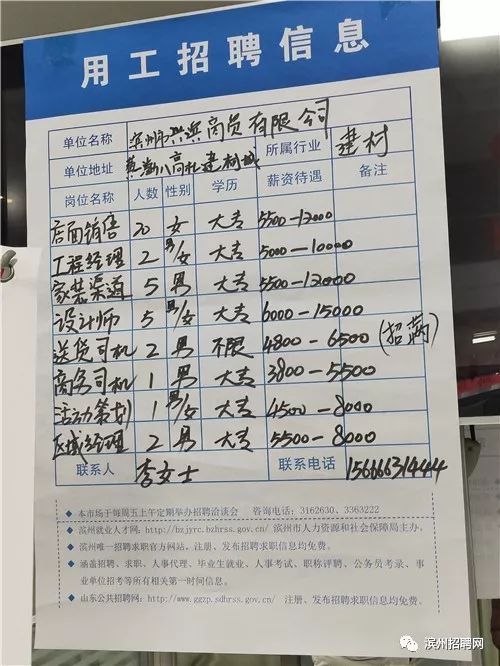 用工招聘信息
单位名称 滨州市滨商贸有限公司
单位地址 黄渤八高杜建材城 所属行业 建材
岗位名称 人数 性别 学历 薪资待遇 备注
店面销售 20 女 大专 5500-12000
工程经理 2 男/女 大专 5000-10000
家装渠道 5 男 大专 5500-12000
设计师 5 男/女 大专 6000-15000
送货司机 2 男 不限 4800-6500 (招满)
商务司机 1 男 大专 3800-5500
活动策划 1 男/女 大专 4500-8000
区域经理 2 男 大专 5500-8000
联系人 李女士 联系电话 15666631444
◆ 本市场于每周五上午定期举办招聘洽谈会 咨询电话:3162630、3363222
◆ 滨州就业人才网:http://bzjyrc.bzhrss.gov.cn/ 滨州市人力资源和社会保障局主办。
◆ 滨州唯一招聘求职官方网站,注册、发布招聘求职信息均免费。
◆ 涵盖招聘、求职、人事代理、毕业生就业、人事考试、职称评聘、公务员考录、事
业单位招考等所有相关第一时间信息。
◆ 山东公共招聘网:http://www.ggzp.sdhrss.gov.cn/ 注册、发布招聘求职信息均免费。
滨州招聘网